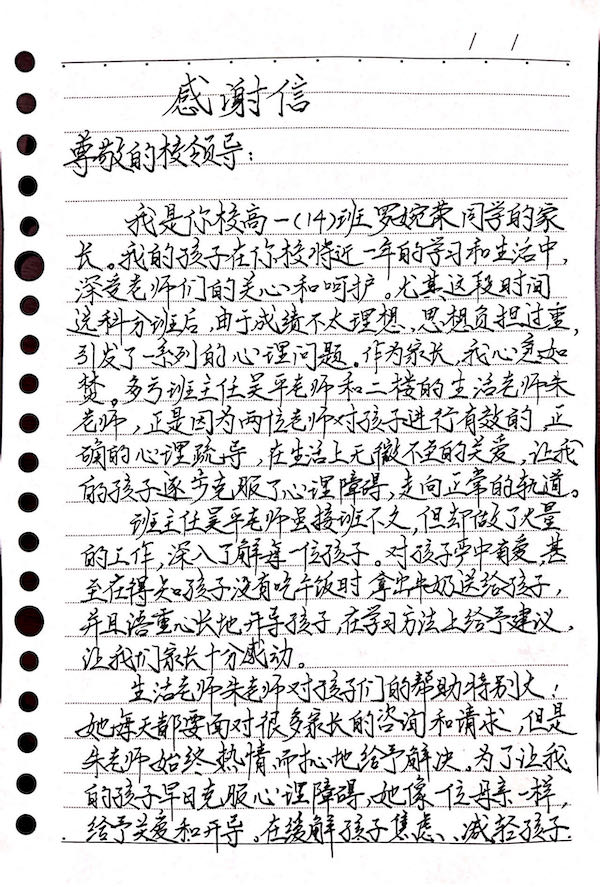 / /
感谢信
尊敬的校领导：
我是你校高一(14)班罗婉荣同学的家
长。我的孩子在你校将近一年的学习和生活中，
深爱老师们的关心和呵护。尤其这段时间
选科分班后，由于成绩不太理想、思想负担过重，
引发了一系列的心理问题。作为家长，我心更如
焚。多亏班主任吴平老师和二楼的生活老师朱
老师，正是因为两位老师对孩子进行有效的、正
确的心理疏导，在生活上无微不至的关爱，让我
的孩子逐步克服了心理障碍，走向正常的轨道。
班主任吴平老师虽接班不久，但却做了大量
的工作，深入了解每一位孩子。对孩子严中有爱，甚
至在得知孩子没有吃午饭时拿出牛奶送给孩子，
并且语重心长地开导孩子，在学习方法上给予建议，
让我们家长十分感动。
生活老师朱老师对孩子们的帮助特别大！
她每天都要面对很多家长的咨询和请求，但是
朱老师始终热情而扎地给予解决。为了让我
的孩子早日克服心理障碍，她像一位母亲一样，
给予关爱和开导。在缓解孩子焦虑、减轻孩子